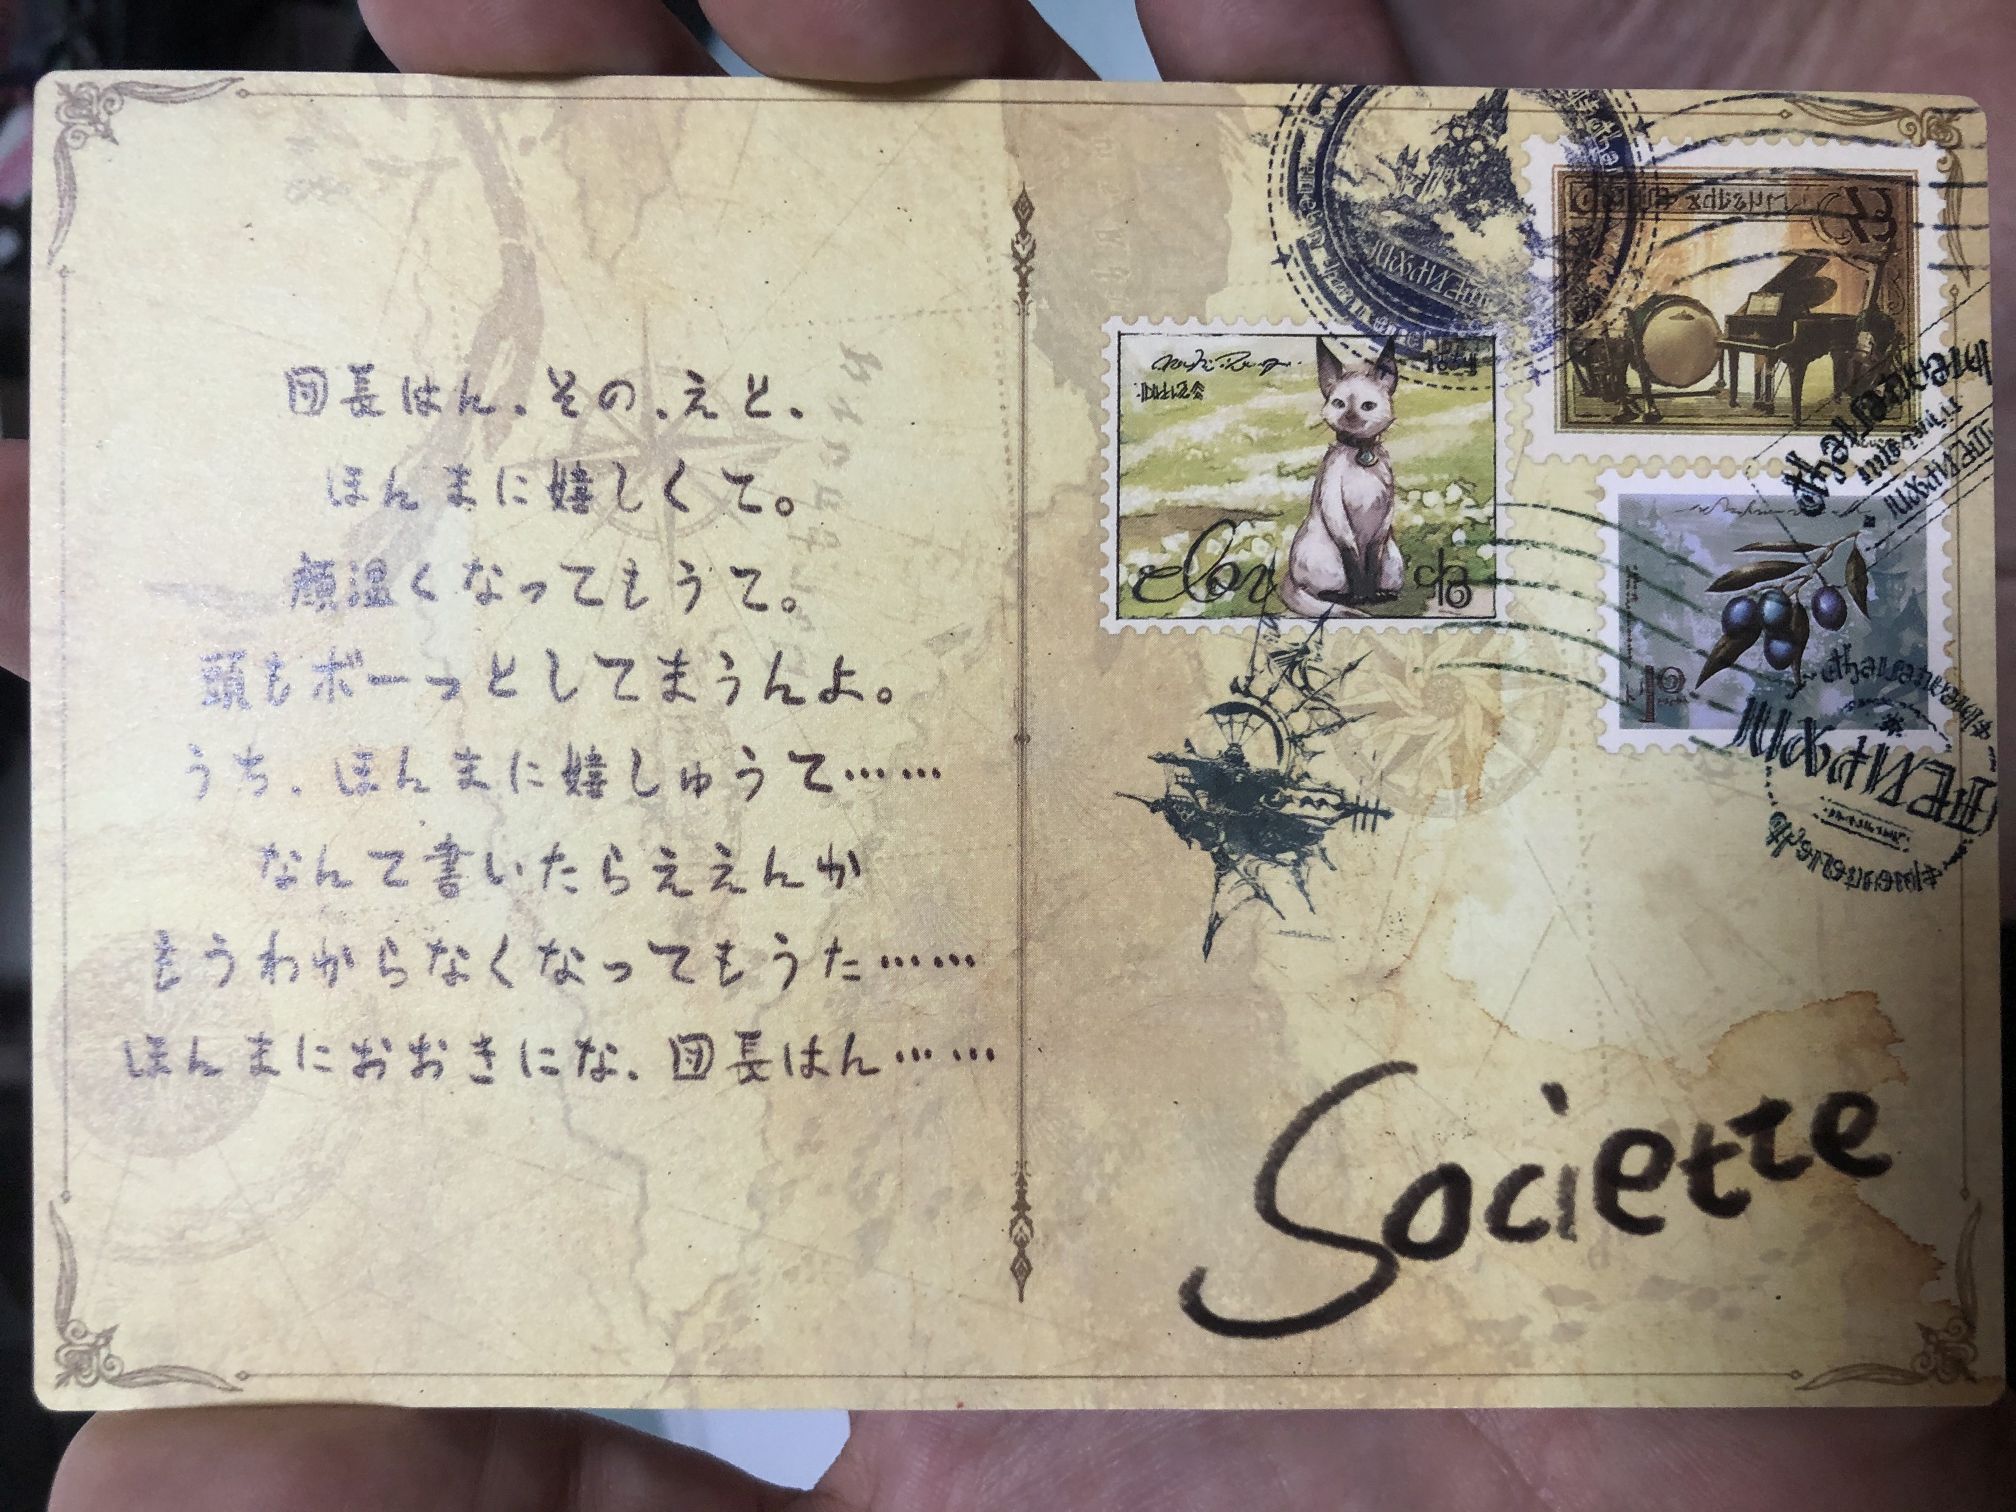 団長はん、その、えと、
ほんまに嬉しくて。
顔温くなってもうて。
頭もボーっとしてまうんよ。
うち、ほんまに嬉しゅうて……
なんて書いたらええんか
もうわからなくなってもうた……
ほんまにおおきにな、団長はん……
Societte